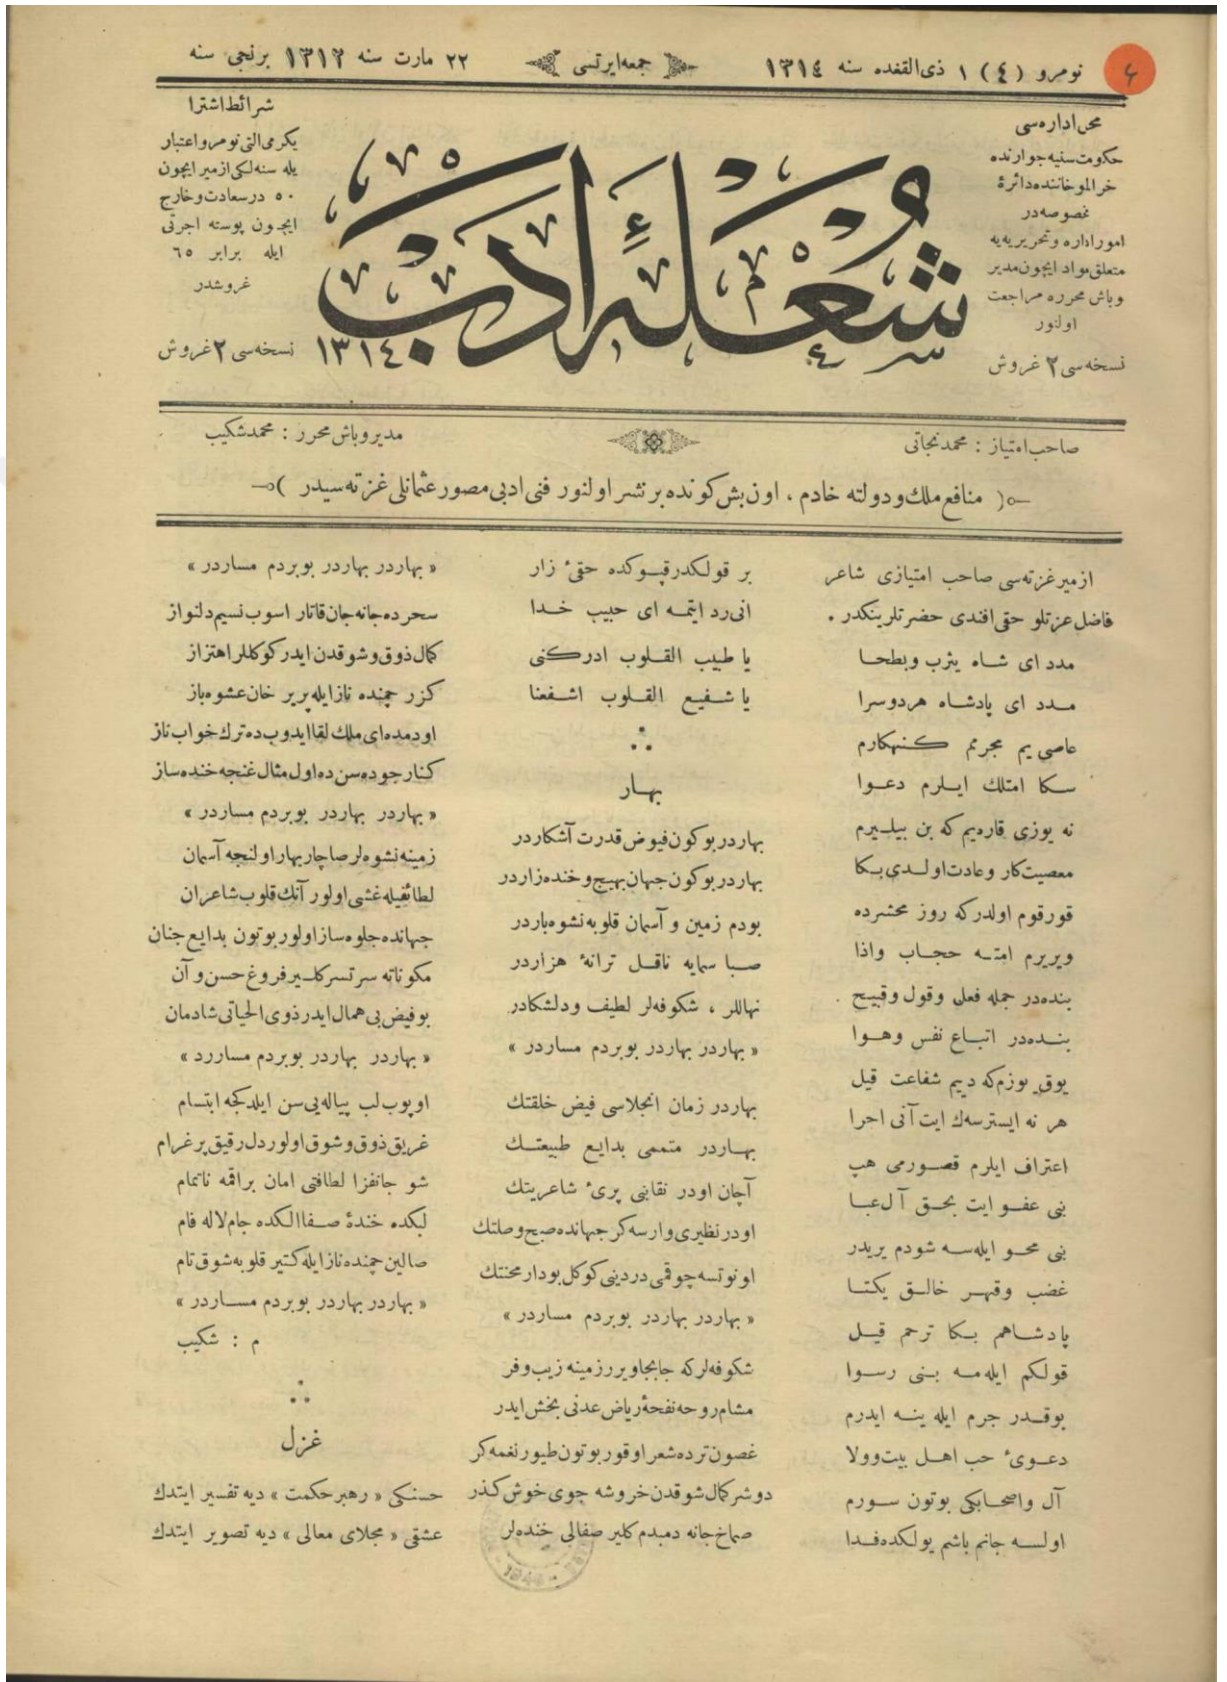 نومرو (٤) ١ ذی‌القعده سنه ١٣١٤
جمعه‌ایرتسی
٢٢ مارت سنه ١٣١٣ برنجی سنه
محل اداره‌سی
حکومت سنیه جوارنده
دائرۀ
مخصوصه‌در
امور اداره و تحریریه‌یه
متعلق مواد ایچون مدیر
و باش محرره مراجعت
اولنور
نسخه‌سی ٢ غروش
شعلۀ ادب
١٣١٤
شرائط اشترا
یکرمی التی نومرو اعتبار
یله سنه‌لکی ازمیر ایچون
٥٠ درسعادت و خارج
ایچون پوسته اجرتی
ایله برابر ٦٥
غروشدر
نسخه‌سی ٢ غروش
صاحب امتیاز : محمد نجاتی
مدیر و باش محرر : محمد شکیب
( منافع ملك و دولته خادم ، اون بش کونده بر نشر اولنور فنی ادبی مصور عثمانلی غزته‌سیدر )
ازمیر غزته‌سی صاحب امتیازی شاعر
فاضل عزتلو حقی افندی حضرتلرینکدر .
مدد ای شاه یثرب وبطحا
مدد ای پادشاه هردوسرا
عاصی یم مجرمم کنهکارم
سکا امتلك ایلرم دعوا
نه یوزی قاره‌یم که بن بیلیرم
معصیت کار وعادت اولدی بکا
قورقوم اولدرکه روز محشرده
ویریرم امته حجاب واذا
بنده‌در جمله فعل وقول وقبیح
بنده‌در اتباع نفس وهوا
یوق یوزم که دییم شفاعت قیل
هر نه ایسترسه‌ك ایت آنی اجرا
اعتراف ایلرم قصورمی هپ
بنی عفو ایت بحق آل عبا
بنی محو ایله‌سه شودم یریدر
غضب وقهر خالق یکتا
پادشاهم بکا ترحم قیل
قولکم ایله‌مه بنی رسوا
بوقدر جرم ایله ینه ایدرم
دعوئ حب اهل بیت وولا
آل واصحابکی بوتون سورم
اولسه جانم باشم یولکده فدا
بر قولکدر قپوکده حقئ زار
انی رد ایتمه ای حبیب خدا
یا طبیب القلوب ادرکنی
یا شفیع القلوب اشفعنا
بهار
بهاردر بوکون فیوض قدرت آشکاردر
بهاردر بوکون جهان بهیج و خنده‌زاردر
بودم زمین و آسمان قلوبه نشوه‌باردر
صبا سمایه ناقل ترانۀ هزاردر
نهاللر ، شکوفه‌لر لطیف ودلشکاردر
« بهاردر بهاردر بوبردم مساردر »
بهاردر زمان انجلاسی فیض خلقتك
بهاردر متممی بدایع طبیعتك
آچان اودر نقابنی پرئ شاعریتك
اودر نظیری وارسه کر جهانده صبح وصلتك
اونوتسه چوقمی دردینی کوکل بودار محنتك
« بهاردر بهاردر بوبردم مساردر »
شکوفه‌لرکه جابجا ویرر زمینه زیب وفر
مشام روحه نفحۀ ریاض عدنی بخش ایدر
غصون ترده شعر اوقور بوتون طیور نغمه‌کر
دوشر کمال شوقدن خروشه جوی خوش کذر
صماخ جانه دمبدم کلیر صفالی خنده‌لر
« بهاردر بهاردر بوبردم مساردر »
سحرده جانه جان قاتار اسوب نسیم دلنواز
کمال ذوق وشوقدن ایدر کوکللر اهتزاز
کزر چمنده ناز ایله پریر خان عشوه‌باز
اودمده ای ملك لقا ایدوب ده ترك خواب ناز
کنار جوده سن ده اول مثال غنجه خنده‌ساز
« بهاردر بهاردر بوبردم مساردر »
زمینه نشوه‌لر صاچار بهار اولنجه آسمان
لطائفیله غشی اولور آنك قلوب شاعران
جهانده جلوه‌ساز اولور بوتون بدایع جنان
مکوناته سرتسر کلیر فروغ حسن و آن
بوفیض بی همال ایدر ذوی الحیاتی شادمان
« بهاردر بهاردر بوبردم مساررد »
اوپوب لب پیاله‌یی سن ایلدکجه ابتسام
غریق ذوق و شوق اولور دل رقیق پر غرام
شو جانفزا لطافتی امان براقمه ناتمام
لبکده خندۀ صفا الکده جام لاله فام
صالین چمنده ناز ایله کتیر قلوبه شوق تام
« بهاردر بهاردر بوبردم مساردر »
م : شکیب
غزل
حسنکی « رهبر حکمت » دیه تفسیر ایتدك
عشقی « مجلای معالی » دیه تصویر ایتدك